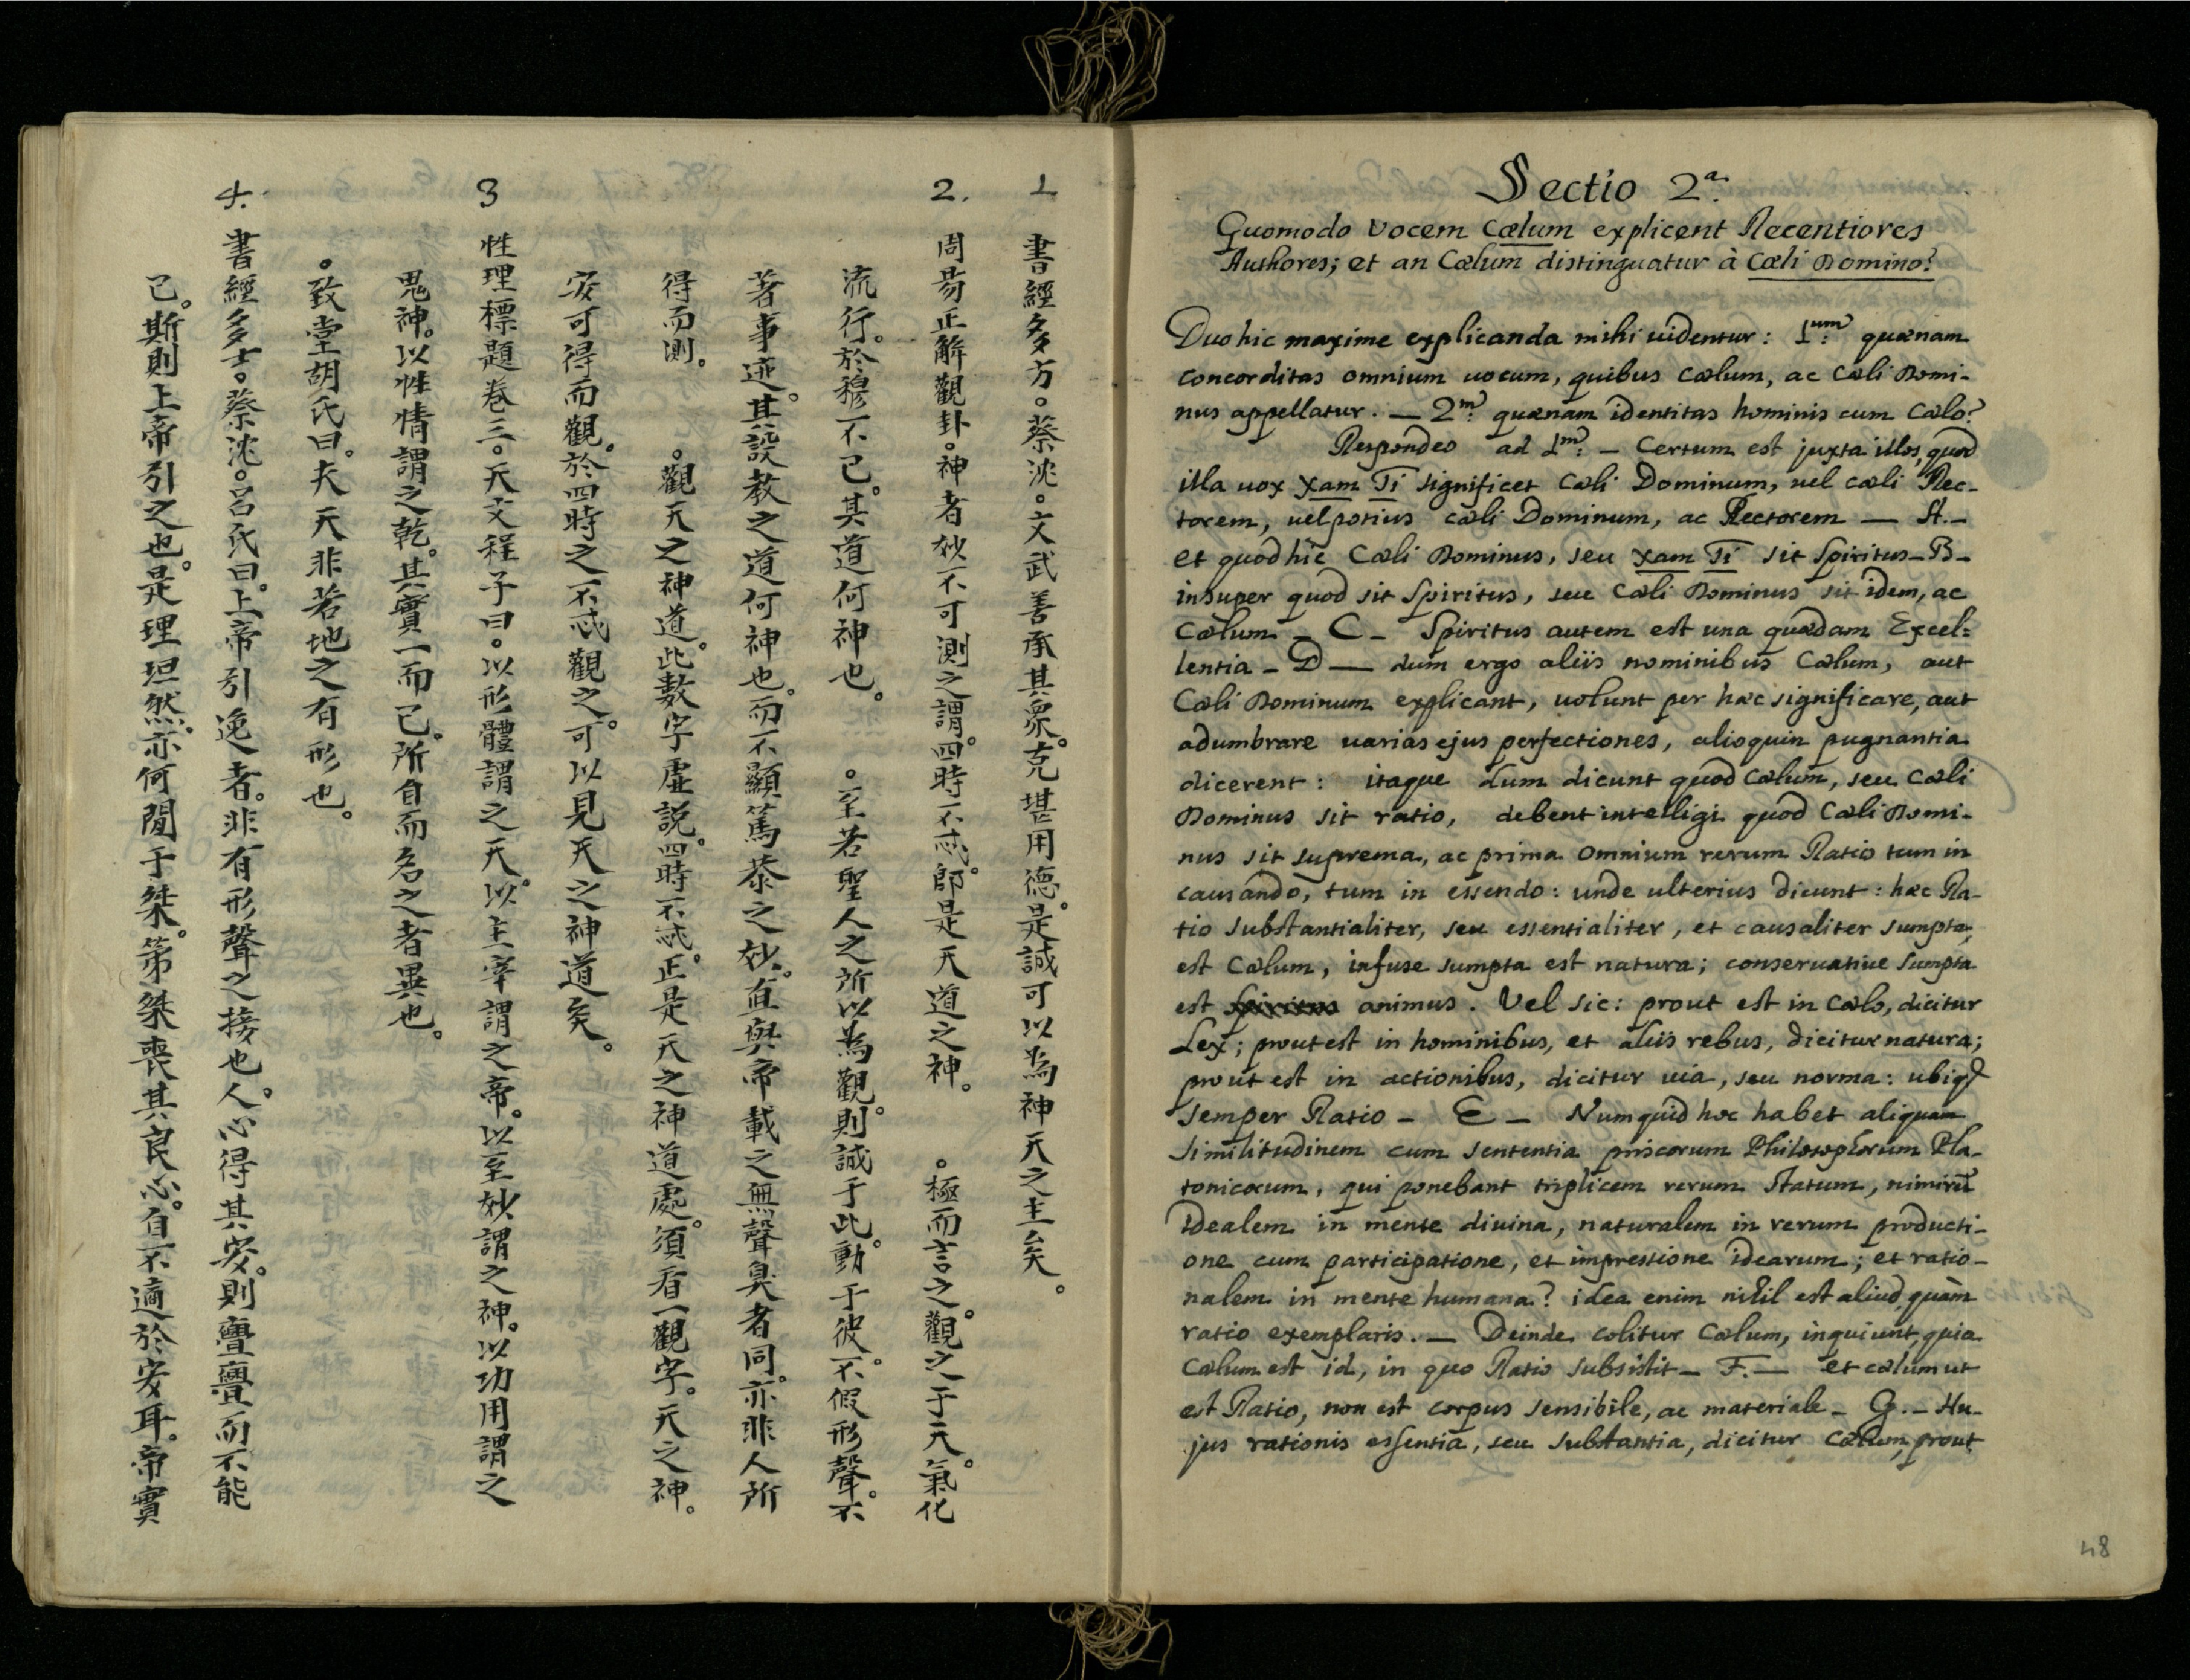 1 書經多方。蔡沈。文武善承其衆。克堪用德。是誠可以為神天之主矣。
2. 周昜正解觀卦。神者妙不可測之謂。四時不忒。即是天道之神。 。極而言之。觀之于天。氣化
流行。於穆不已。其道何神也。 。至若聖人之所以為觀。則誠于此。動于彼。不假形聲。不
著事迹。其設教之道何神也。而不顯篤恭之妙。直與帝載之無聲臭者同。亦非人所
得而測。 。觀天之神道。此數字虛説。四時不忒。正是天之神道處。須看一觀字。天之神。
安可得而觀。於四時之不忒觀之。可以見天之神道矣。
3 性理標題卷三。天文程子曰。以形體謂之天。以主宰謂之帝。以至妙謂之神。以功用謂之
鬼神。以性情謂之乾。其實一而已。所自而名之者異也。
。致堂胡氏曰。夫天非若地之有形也。
4. 書經多士。蔡沈。呂氏曰。上帝引逸者。非有形聲之接也。人心得其安。則亹亹而不能
已。斯則上帝引之也。是理坦然。亦何間于桀。第桀喪其良心。自不適於安耳。帝實
Sectio 2a.
Quomodo vocem Cœlum explicent Recentiores
Authores; et an Cœlum distinguatur à Cœli Domino?
Duo hic maxime explicanda mihi uidentur: 1um: quænam
concorditas omnium uocum, quibus Cœlum, ac Cœli Domi-
nus appellatur. — 2m: quænam identitas hominis cum Cœlo?
Respondeo ad 1m: – Certum est juxta illos, quod
illa uox Xam Ti significet Cœli Dominum, uel cœli Rec-
torem, uel potius cœli Dominum, ac Rectorem — A. –
et quod hic Cœli Dominus, seu Xam Ti sit Spiritus – B –
insuper quod sit Spiritus, seu Cœli Dominus sit idem, ac
Cœlum – C – Spiritus autem est una quædam Excel=
lentia – D — dum ergo aliis nominibus Cœlum, aut
Cœli Dominum explicant, uolunt per hæc significare, aut
adumbrare uarias ejus perfectiones, alioquin pugnantia
dicerent: itaque dum dicunt quod Cœlum, seu Cœli
Dominus sit ratio, debent intelligi quod Cœli Domi-
nus sit suprema, ac prima omnium rerum Ratio tum in
causando, tum in essendo: unde ulterius dicunt: hæc Ra-
tio substantialiter, seu essentialiter, et causaliter sumpta,
est Cœlum, infuse sumpta est natura; conseruatiue sumpta
est spiritus animus. Vel sic: prout est in Cœlo, dicitur
Lex; prout est in hominibus, et aliis rebus, dicitur natura;
prout est in actionibus, dicitur uia, seu norma: ubiq3
semper Ratio – E – Numquid hoc habet aliquam
similitudinem cum sententia priscorum Philosophorum Pla-
tonicorum, qui ponebant triplicem rerum statum, nimirū
idealem in mente diuina, naturalem in rerum producti-
one cum participatione, et impressione idearum; et ratio-
nalem in mente humana? idea enim nihil est aliud, quàm
ratio exemplaris. — Deinde colitur Cœlum, inquiunt, quia
Cœlum est id, in quo Ratio subsistit – F. — et cœlum ut
est Ratio, non est corpus sensibile, ac materiale – G. – Hu-
jus rationis essentia, seu substantia, dicitur Cœlum, prout
48